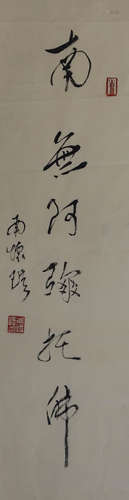 南無阿彌托佛
南懷瑾